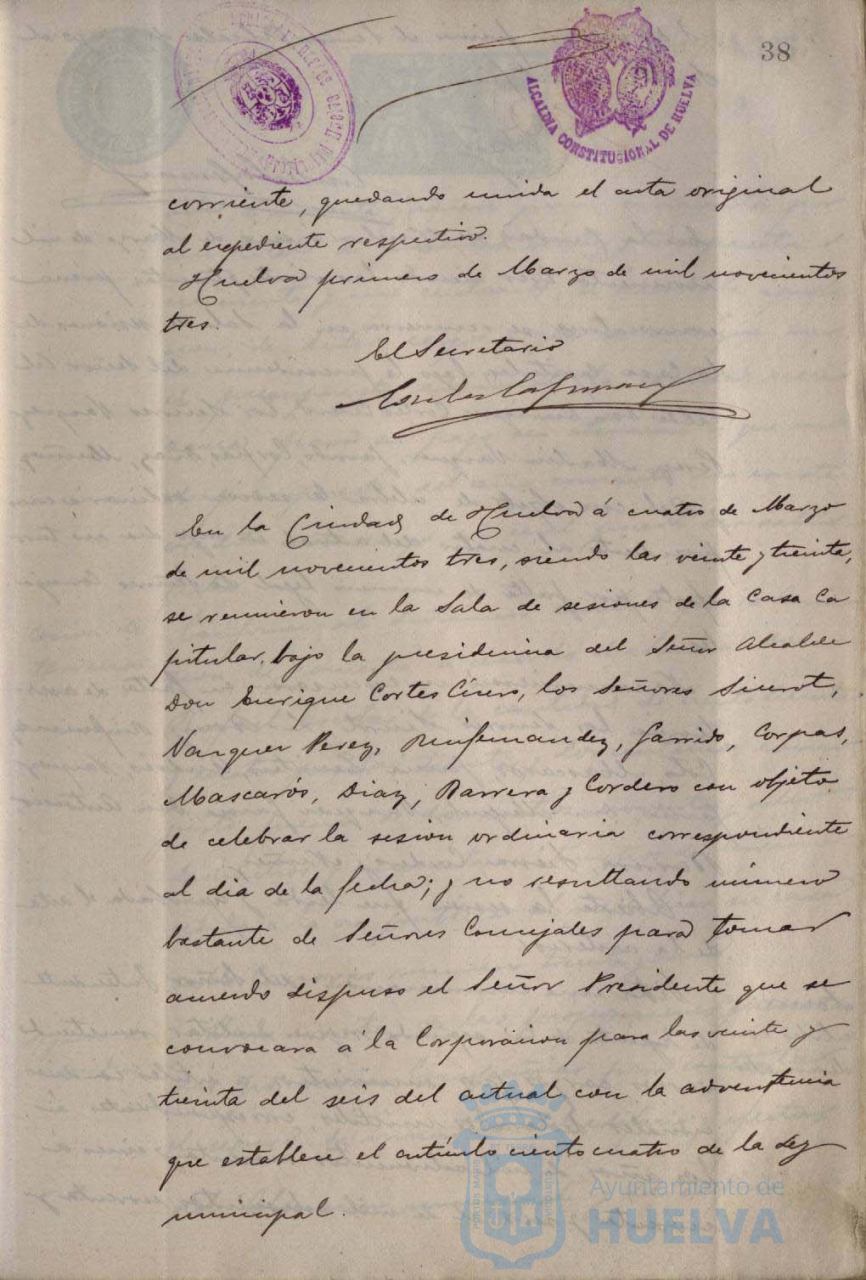 38
ALCALDIA CONSTITUCIONAL DE HUELVA
corriente, quedando unida el acta original
al expediente respectivo.
Huelva primero de Marzo de mil novecientos
tres.
El Secretario
En la Ciudad de Huelva á cuatro de Marzo
de mil novecientos tres, siendo las veinte y treinta,
se reunieron en la Sala de sesiones de la Casa Ca
pitular, bajo la presidencia del Señor Alcalde
Don Enrique Cortes Cisero, los Señores Siurot,
Vazquez Perez, Quifernandez, Garrido, Corpas,
Mascarós, Diaz, Barrera y Cordero con objeto
de celebrar la sesion ordinaria correspondiente
al dia de la fecha; y no resultando número
bastante de Señores Concejales para tomar
acuerdo dispuso el Señor Presidente que se
convocara á la Corporacion para las veinte y
treinta del seis del actual con la advertencia
que establece el artículo ciento cuatro de la Ley
municipal.
Ayuntamiento de
HUELVA